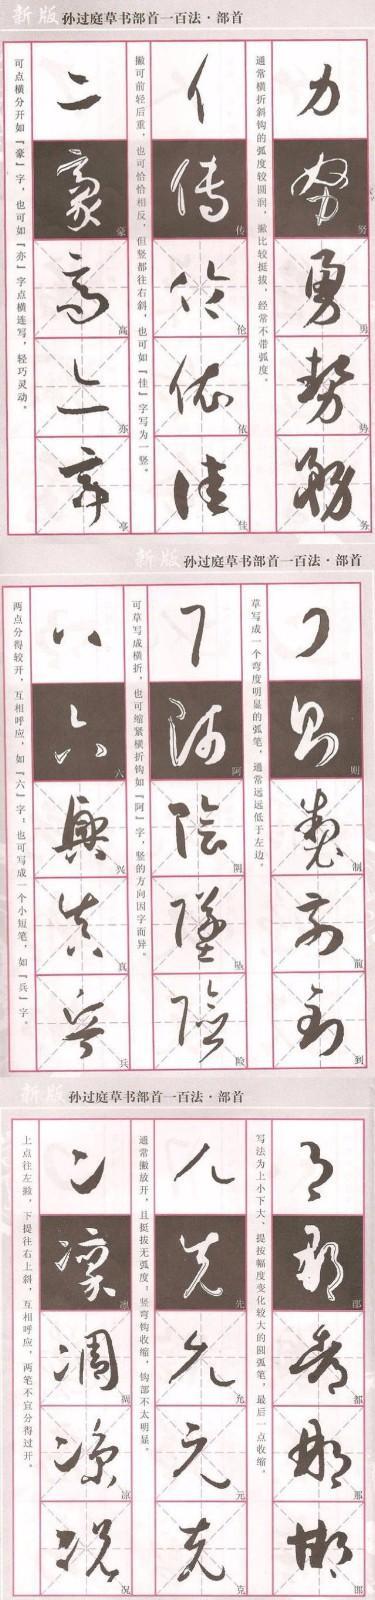 新版 孙过庭草书部首一百法·部首
通常横折斜钩的弧度较圆润，撇比较挺拔，经常不带弧度。
力
努
勇
势
务
撇可前轻后重，也可恰恰相反，但竖都往右斜，也可如『佳』字写为一竖。
亻
传
伦
依
佳
可点横分开如『豪』字，也可如『亦』字点横连写，轻巧灵动。
亠
豪
高
亦
亭
新版 孙过庭草书部首一百法·部首
草写成一个弯度明显的弧笔，通常远远低于左边。
则
制
前
到
可草写成横折，也可缩紧横折钩如『阿』字，竖的方向因字而异。
阿
阴
坠
险
两点分得较开，互相呼应，如『六』字；也可写成一个小短笔，如『兵』字。
六
兴
真
兵
新版 孙过庭草书部首一百法·部首
写法为上小下大、提按幅度变化较大的圆弧笔，最后一点收缩。
都
那
邯
通常撇放开，且挺拔无弧度；竖弯钩收缩，钩部不太明显。
先
允
元
克
上点往左撇，下提往右上斜，互相呼应，两笔不宜分得过开。
冫
凛
凋
凉
况